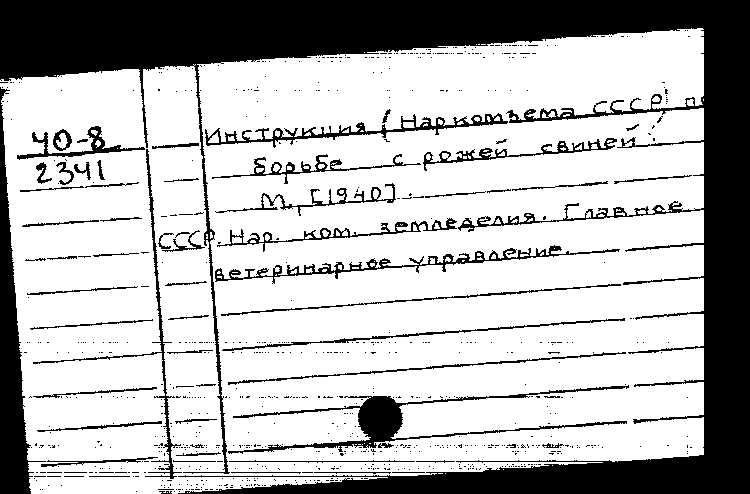 40-8
2341
Инструкция (Наркомзема СССР) по
борьбе с рожей свиней.
М., [1940].
СССР. Нар. ком. земледелия. Главное
ветеринарное управление.